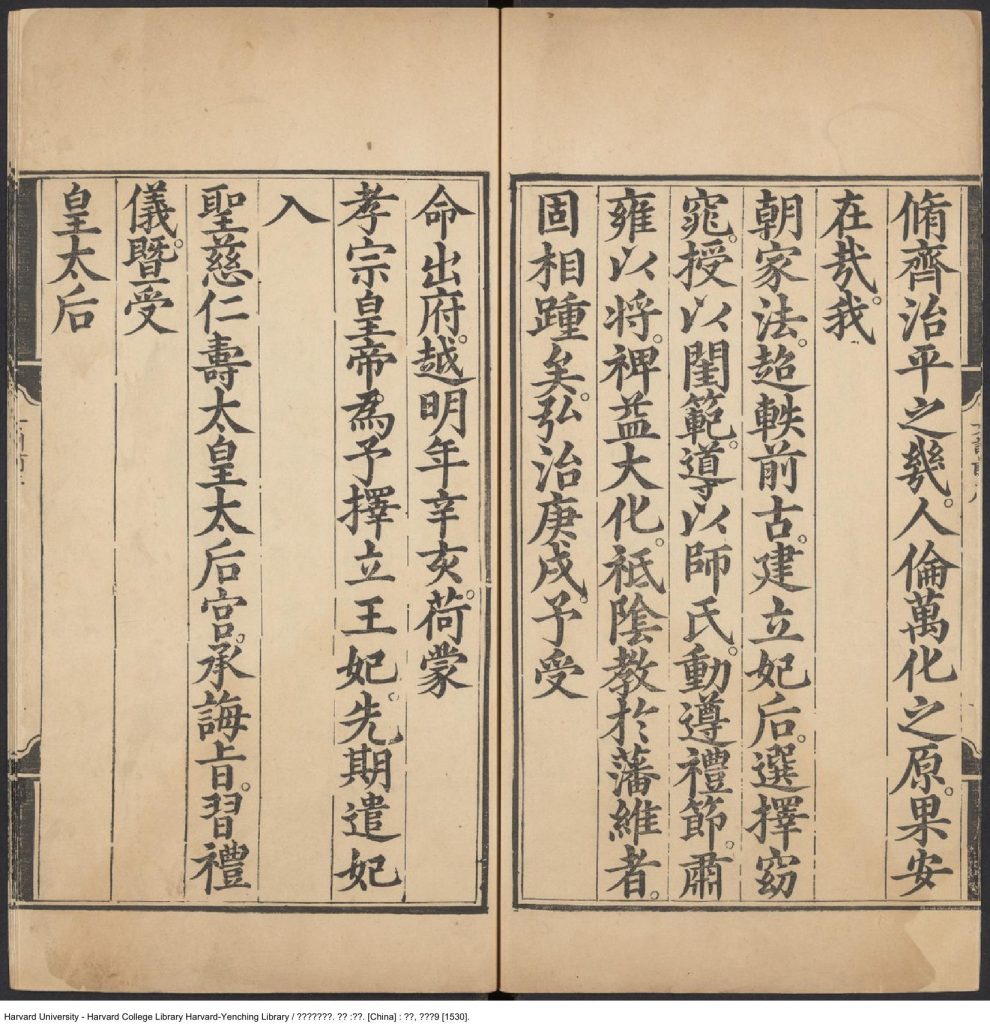 脩齊治平之幾。人倫萬化之原。果安
在㢤。我
朝家法。超軼前古。建立妃后。選擇窈
窕。授以閨範。導以師氏。動遵禮節。肅
雍以將。裨益大化。祗隂教於藩維者。
固相踵矣。弘治庚戌。予受
命出府。越明年辛亥。荷蒙
孝宗皇帝。為予擇立王妃。先期遣妃
入
聖慈仁壽太皇太后宫。承誨㫖。習禮
儀。暨受
皇太后
Harvard University - Harvard College Library Harvard-Yenching Library / ???????. ?? :??. [China] : ??, ???9 [1530].